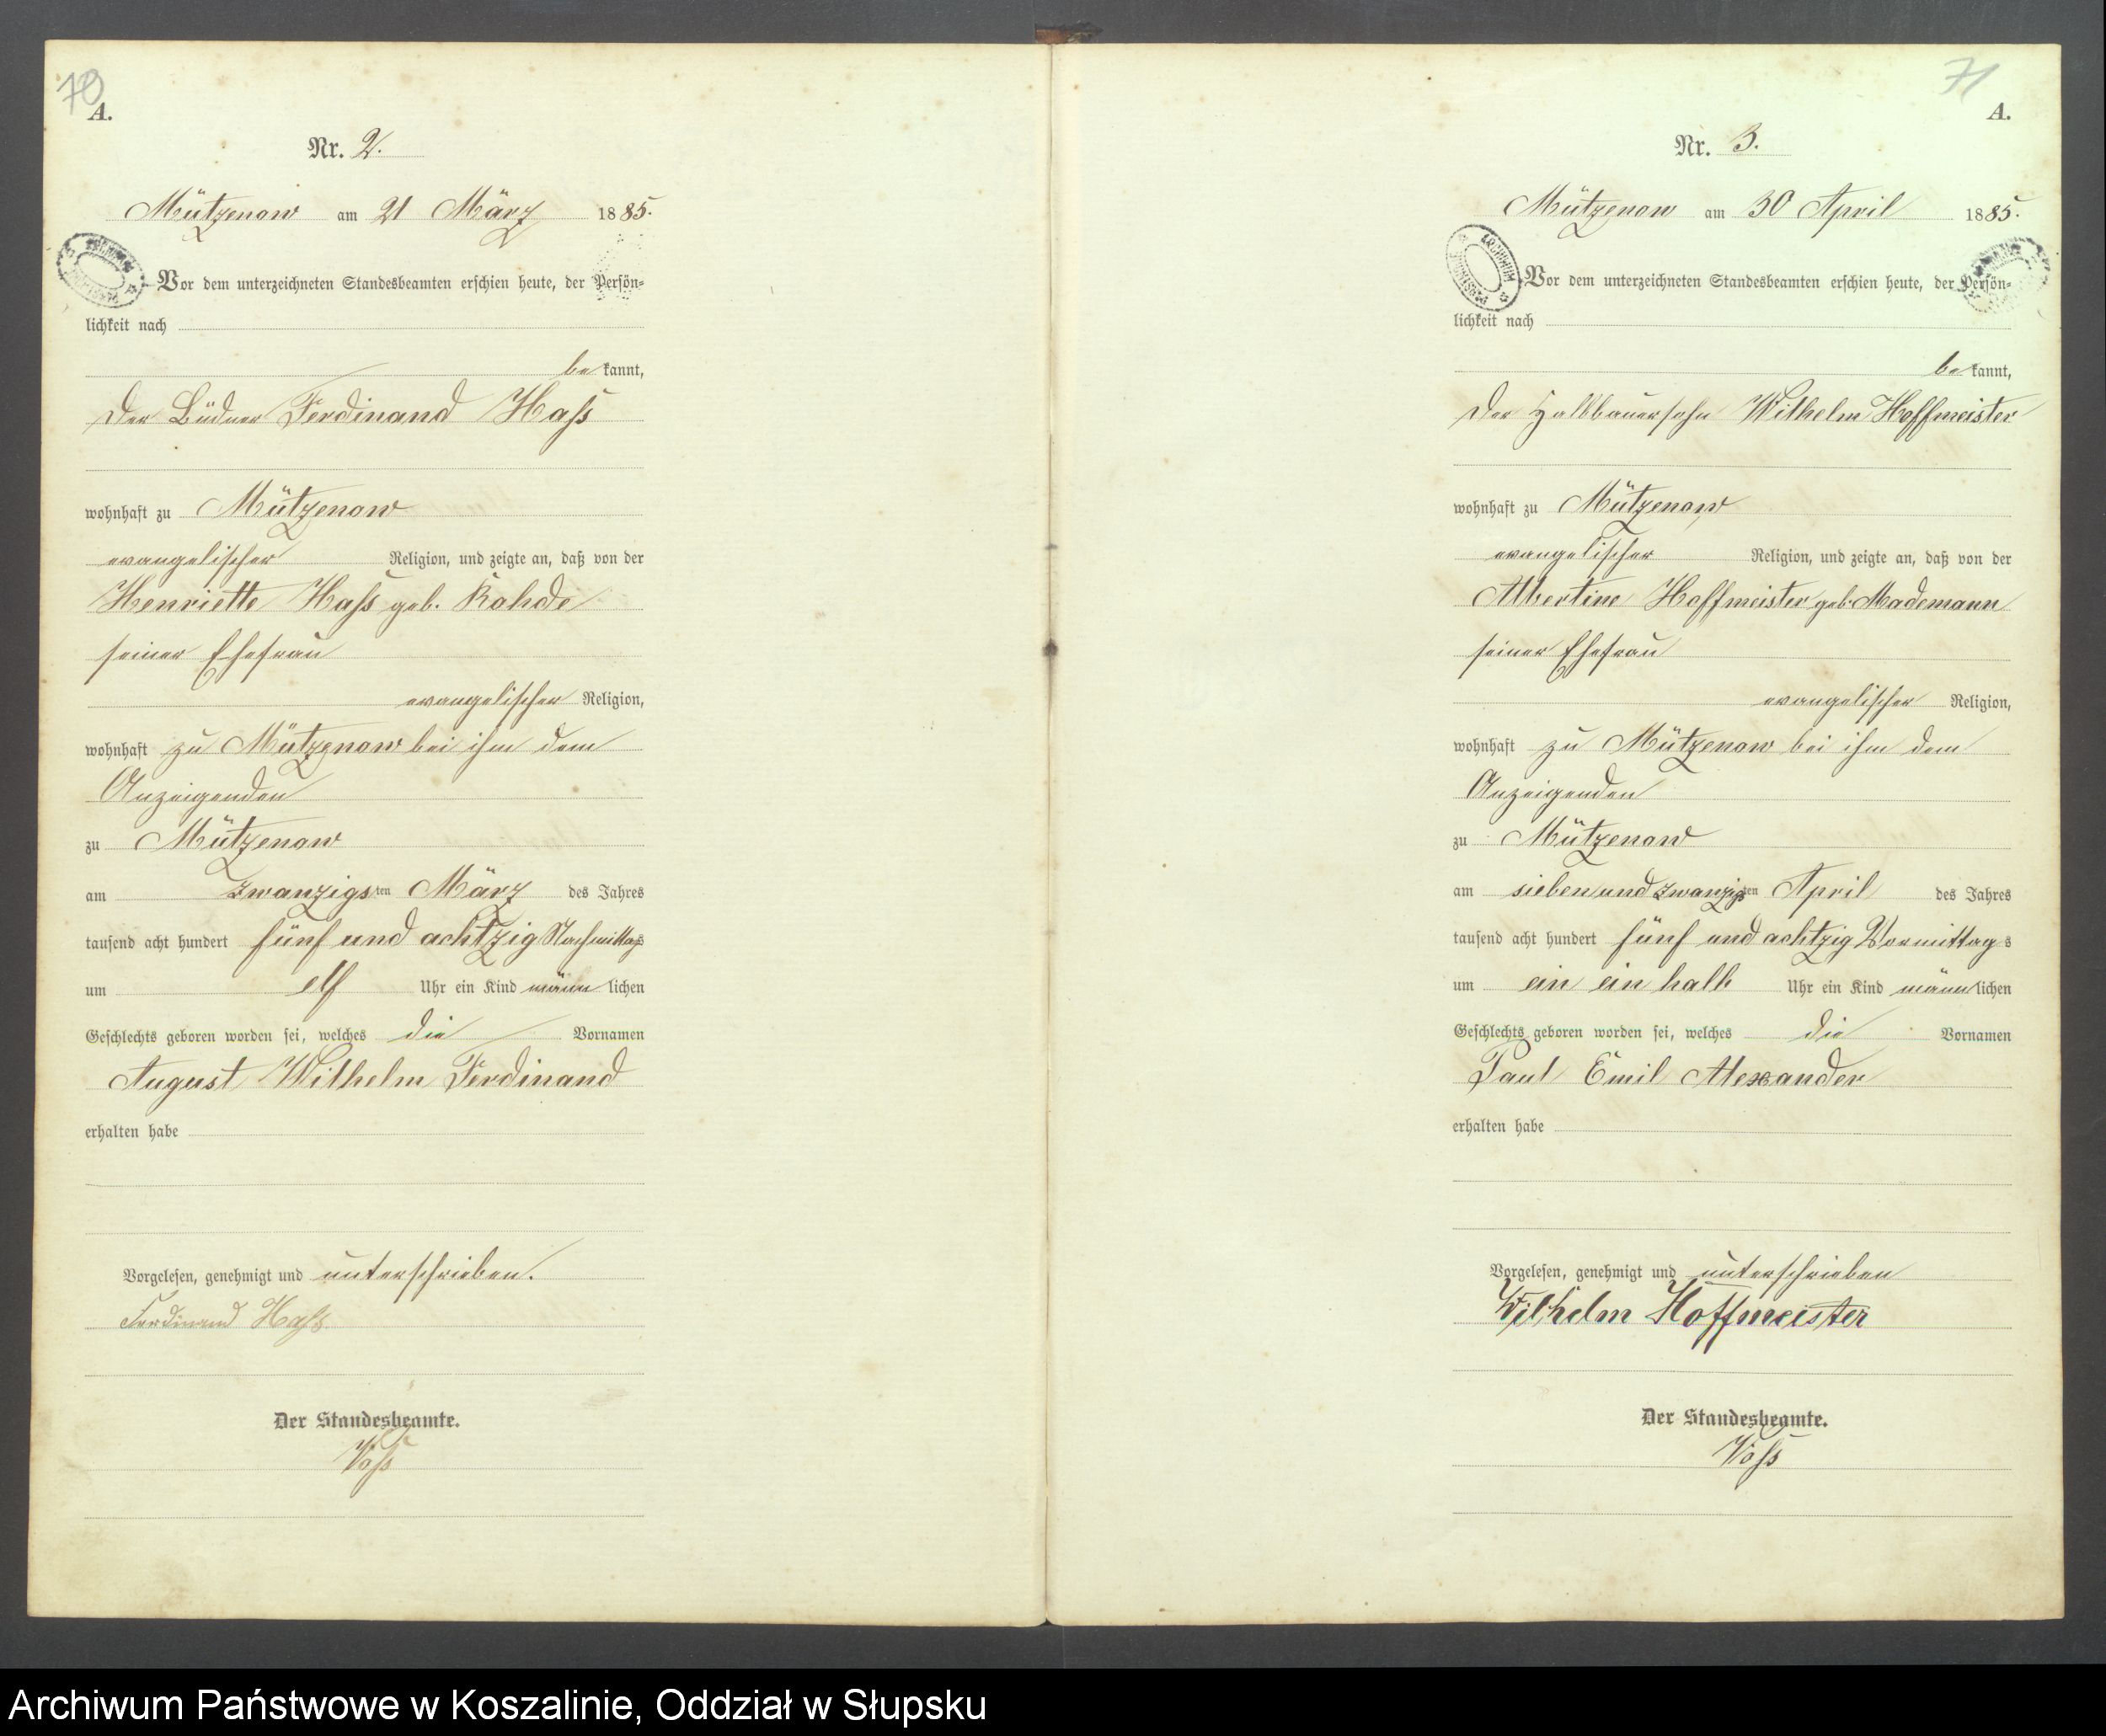 70
A.
Nr. 2.
Mützenow am 21 März 1885.
Vor dem unterzeichneten Standesbeamten erschien heute, der Persön-
lichkeit nach
bekannt,
der Büdner Ferdinand Hass
wohnhaft zu Mützenow
evangelischer Religion, und zeigte an, daß von der
Henriette Hass geb. Rohde
seiner Ehefrau
evangelischer Religion,
wohnhaft zu Mützenow bei ihm dem
Anzeigenden
zu Mützenow
am zwanzigsten März des Jahres
tausend acht hundert fünf und achtzig Nachmittags
um elf Uhr ein Kind männlichen
Geschlechts geboren worden sei, welches die Vornamen
August Wilhelm Ferdinand
erhalten habe
Vorgelesen, genehmigt und unterschrieben.
Ferdinand Hass
Der Standesbeamte.
Voss
71
A.
Nr. 3.
Mützenow am 30 April 1885.
Vor dem unterzeichneten Standesbeamten erschien heute, der Persön-
lichkeit nach
bekannt,
der Halbbauersohn Wilhelm Hoffmeister
wohnhaft zu Mützenow
evangelischer Religion, und zeigte an, daß von der
Albertine Hoffmeister geb. Mademann
seiner Ehefrau
evangelischer Religion,
wohnhaft zu Mützenow bei ihm dem
Anzeigenden
zu Mützenow
am sieben und zwanzigsten April des Jahres
tausend acht hundert fünf und achtzig Vormittags
um ein ein halb Uhr ein Kind männlichen
Geschlechts geboren worden sei, welches die Vornamen
Paul Emil Alexander
erhalten habe
Vorgelesen, genehmigt und unterschrieben
Wilhelm Hoffmeister
Der Standesbeamte.
Voss
Archiwum Państwowe w Koszalinie, Oddział w Słupsku